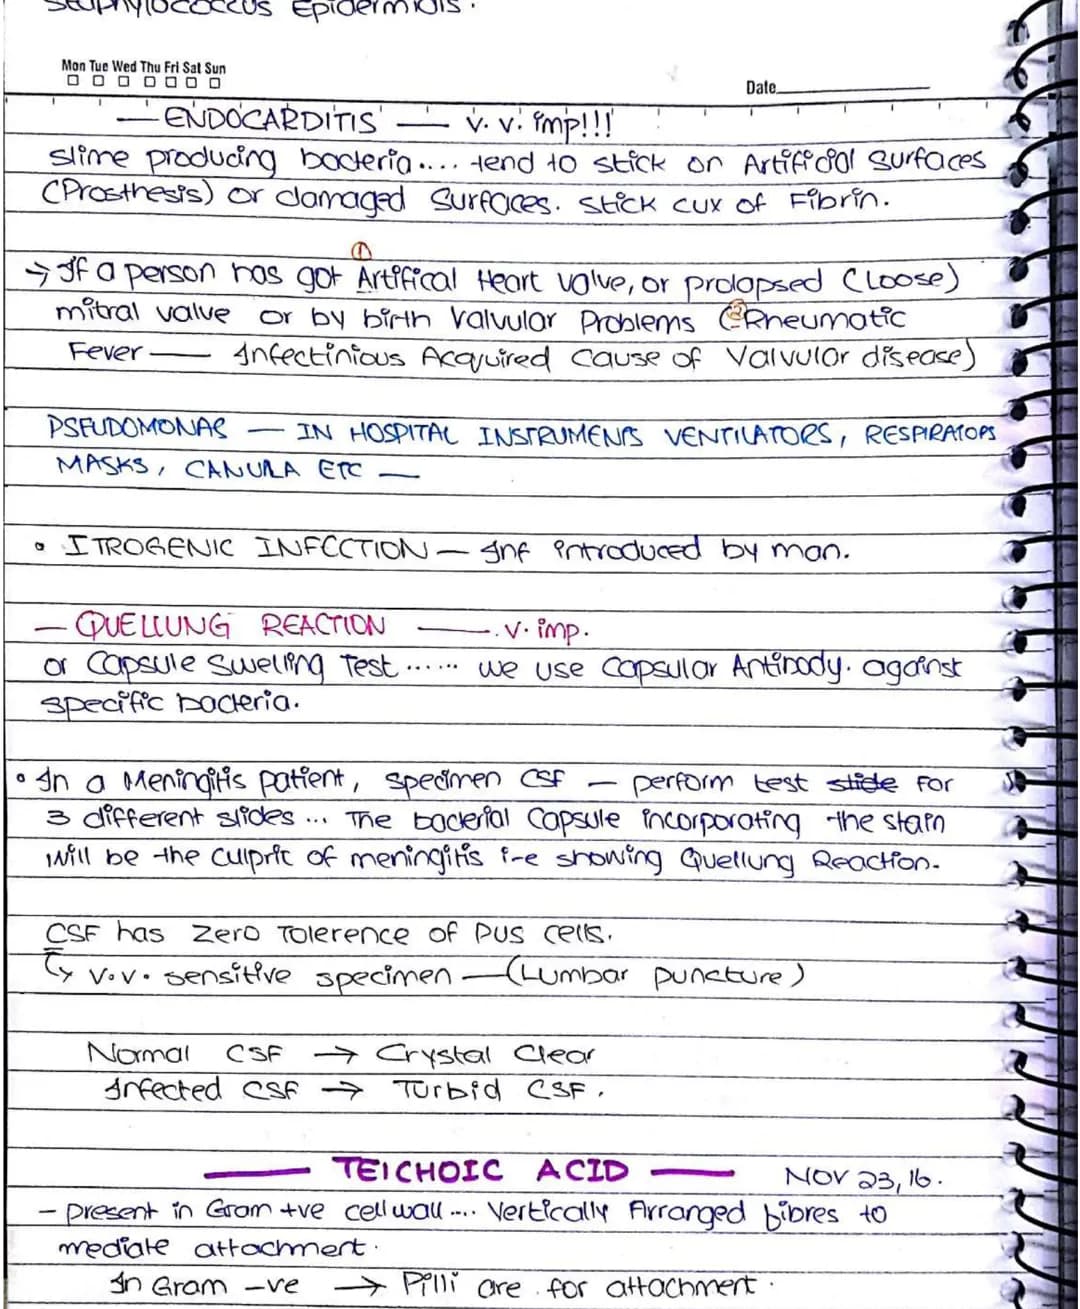 Staphylococcus Epidermidis.
Mon Tue Wed Thu Fri Sat Sun
Date
— ENDOCARDITIS — v. v. imp!!!
slime producing bacteria.... tend to stick on Artificial surfaces
(Prosthesis) or damaged surfaces. stick cux of Fibrin.
①
→ If a person has got Artifical Heart valve, or prolapsed (Loose)
mitral valve or by birth valvular Problems (② Rheumatic
Fever — Infectinious Acquired cause of Valvular disease)
PSEUDOMONAS — IN HOSPITAL INSTRUMENTS VENTILATORS, RESPIRATORS
MASKS, CANULA ETC —
• ITROGENIC INFECTION — Inf introduced by man.
— QUELLUNG REACTION — v. imp.
or Capsule Swelling Test ...... we use capsular Antibody. against
specific bacteria.
• In a Meningitis patient, specimen CSF — perform test slide for
3 different slides ... The bacterial Capsule incorporating the stain
will be the culprit of meningitis i-e showing Quellung Reaction.
CSF has Zero Tolerence of Pus cells.
↳ v.v. sensitive specimen — (Lumbar puncture)
Normal CSF → Crystal Clear
Infected CSF → Turbid CSF.
— TEICHOIC ACID — NOV 23, 16.
- present in Gram +ve cell wall .... Vertically Arranged fibres to
mediate attachment.
In Gram -ve → Pilli are for attachment.